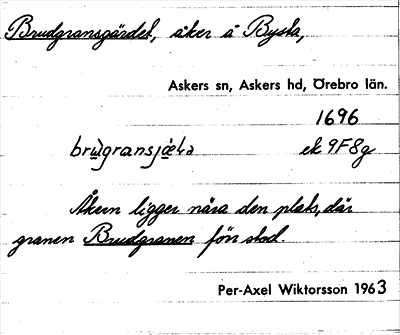 Brudgransgärdet, åker å Bysta,
Askers sn, Askers hd, Örebro län.
1696
ek 9F8g
Åkern ligger nära den plats, där
granen Brudgranen förr stod.
Per-Axel Wiktorsson 1963